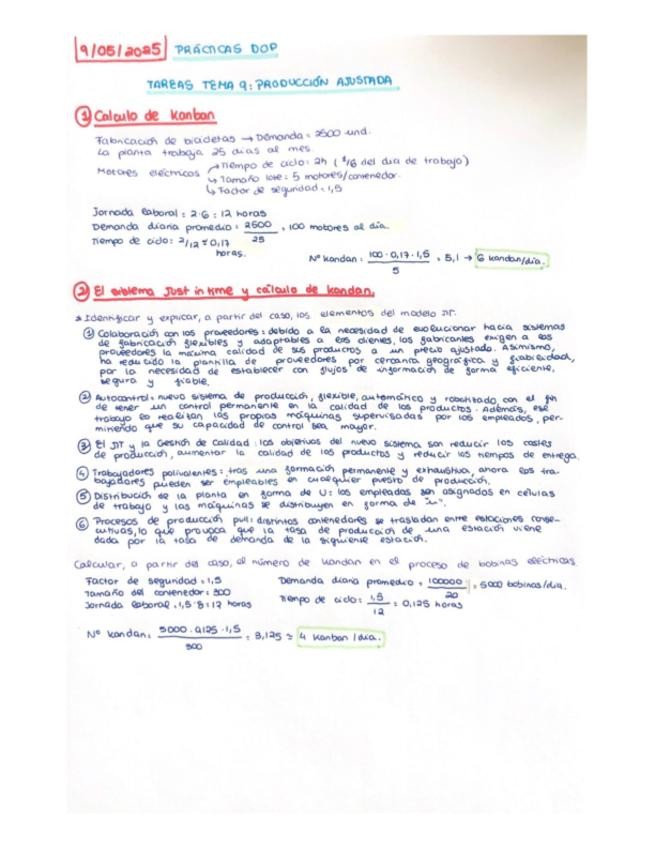 9/05/2025 PRÁCTICAS DOP
TAREAS TEMA 9: PRODUCCIÓN AJUSTADA
① Calculo de Kanban
Fabricación de bicicletas → Demanda = 2500 und.
La planta trabaja 25 días al mes.
Motores eléctricos → Tiempo de ciclo: 2h (1/6 del día de trabajo)
↳ Tamaño lote: 5 motores/contenedor.
↳ Factor de seguridad = 1,5
Jornada laboral = 2·6 = 12 horas
Demanda diaria promedio = 2500/25 = 100 motores al día.
Tiempo de ciclo: 2/12 = 0,17 horas.
Nº kanban = 100·0,17·1,5/5 = 5,1 → 6 kanban/día.
② El sistema Just in time y cálculo de kanban.
* Identificar y explicar, a partir del caso, los elementos del modelo JIT.
① Colaboración con los proveedores: debido a la necesidad de evolucionar hacia sistemas
de fabricación flexibles y adaptables a los clientes, los fabricantes exigen a los
proveedores la máxima calidad de sus productos a un precio ajustado. Asimismo,
ha reducido la plantilla de proveedores por cercanía geográfica y fiabilidad,
por la necesidad de establecer con flujos de información de forma eficiente,
segura y fiable.
② Autocontrol: nuevo sistema de producción, flexible, automático y robotizado, con el fin
de tener un control permanente en la calidad de los productos. Además, ese
trabajo lo realizan las propias máquinas supervisadas por los empleados, per-
mitiendo que su capacidad de control sea mayor.
③ El JIT y la Gestión de Calidad: los objetivos del nuevo sistema son reducir los costes
de producción, aumentar la calidad de los productos y reducir los tiempos de entrega.
④ Trabajadores polivalentes: tras una formación permanente y exhaustiva, ahora los tra-
bajadores pueden ser empleables en cualquier puesto de producción.
⑤ Distribución de la planta en forma de U: los empleados son asignados en células
de trabajo y las máquinas se distribuyen en forma de "U".
⑥ Procesos de producción pull: distintos contenedores se trasladan entre estaciones conse-
cutivas, lo que provoca que la tasa de producción de una estación viene
dada por la tasa de demanda de la siguiente estación.
Calcular, a partir del caso, el número de kanban en el proceso de bobinas eléctricas.
Factor de seguridad = 1,5
Tamaño del contenedor = 300
Jornada laboral = 1,5·8 = 12 horas
Demanda diaria promedio = 100000/20 = 5000 bobinas/día.
Tiempo de ciclo: 1,5/12 = 0,125 horas
Nº kanban = 5000·0,125·1,5/300 = 3,125 ≈ 4 kanban/día.